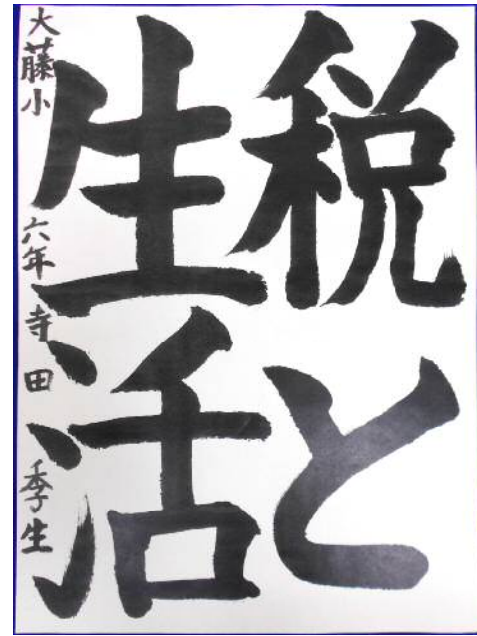 税と
生活
大藤小 六年 寺田 季生